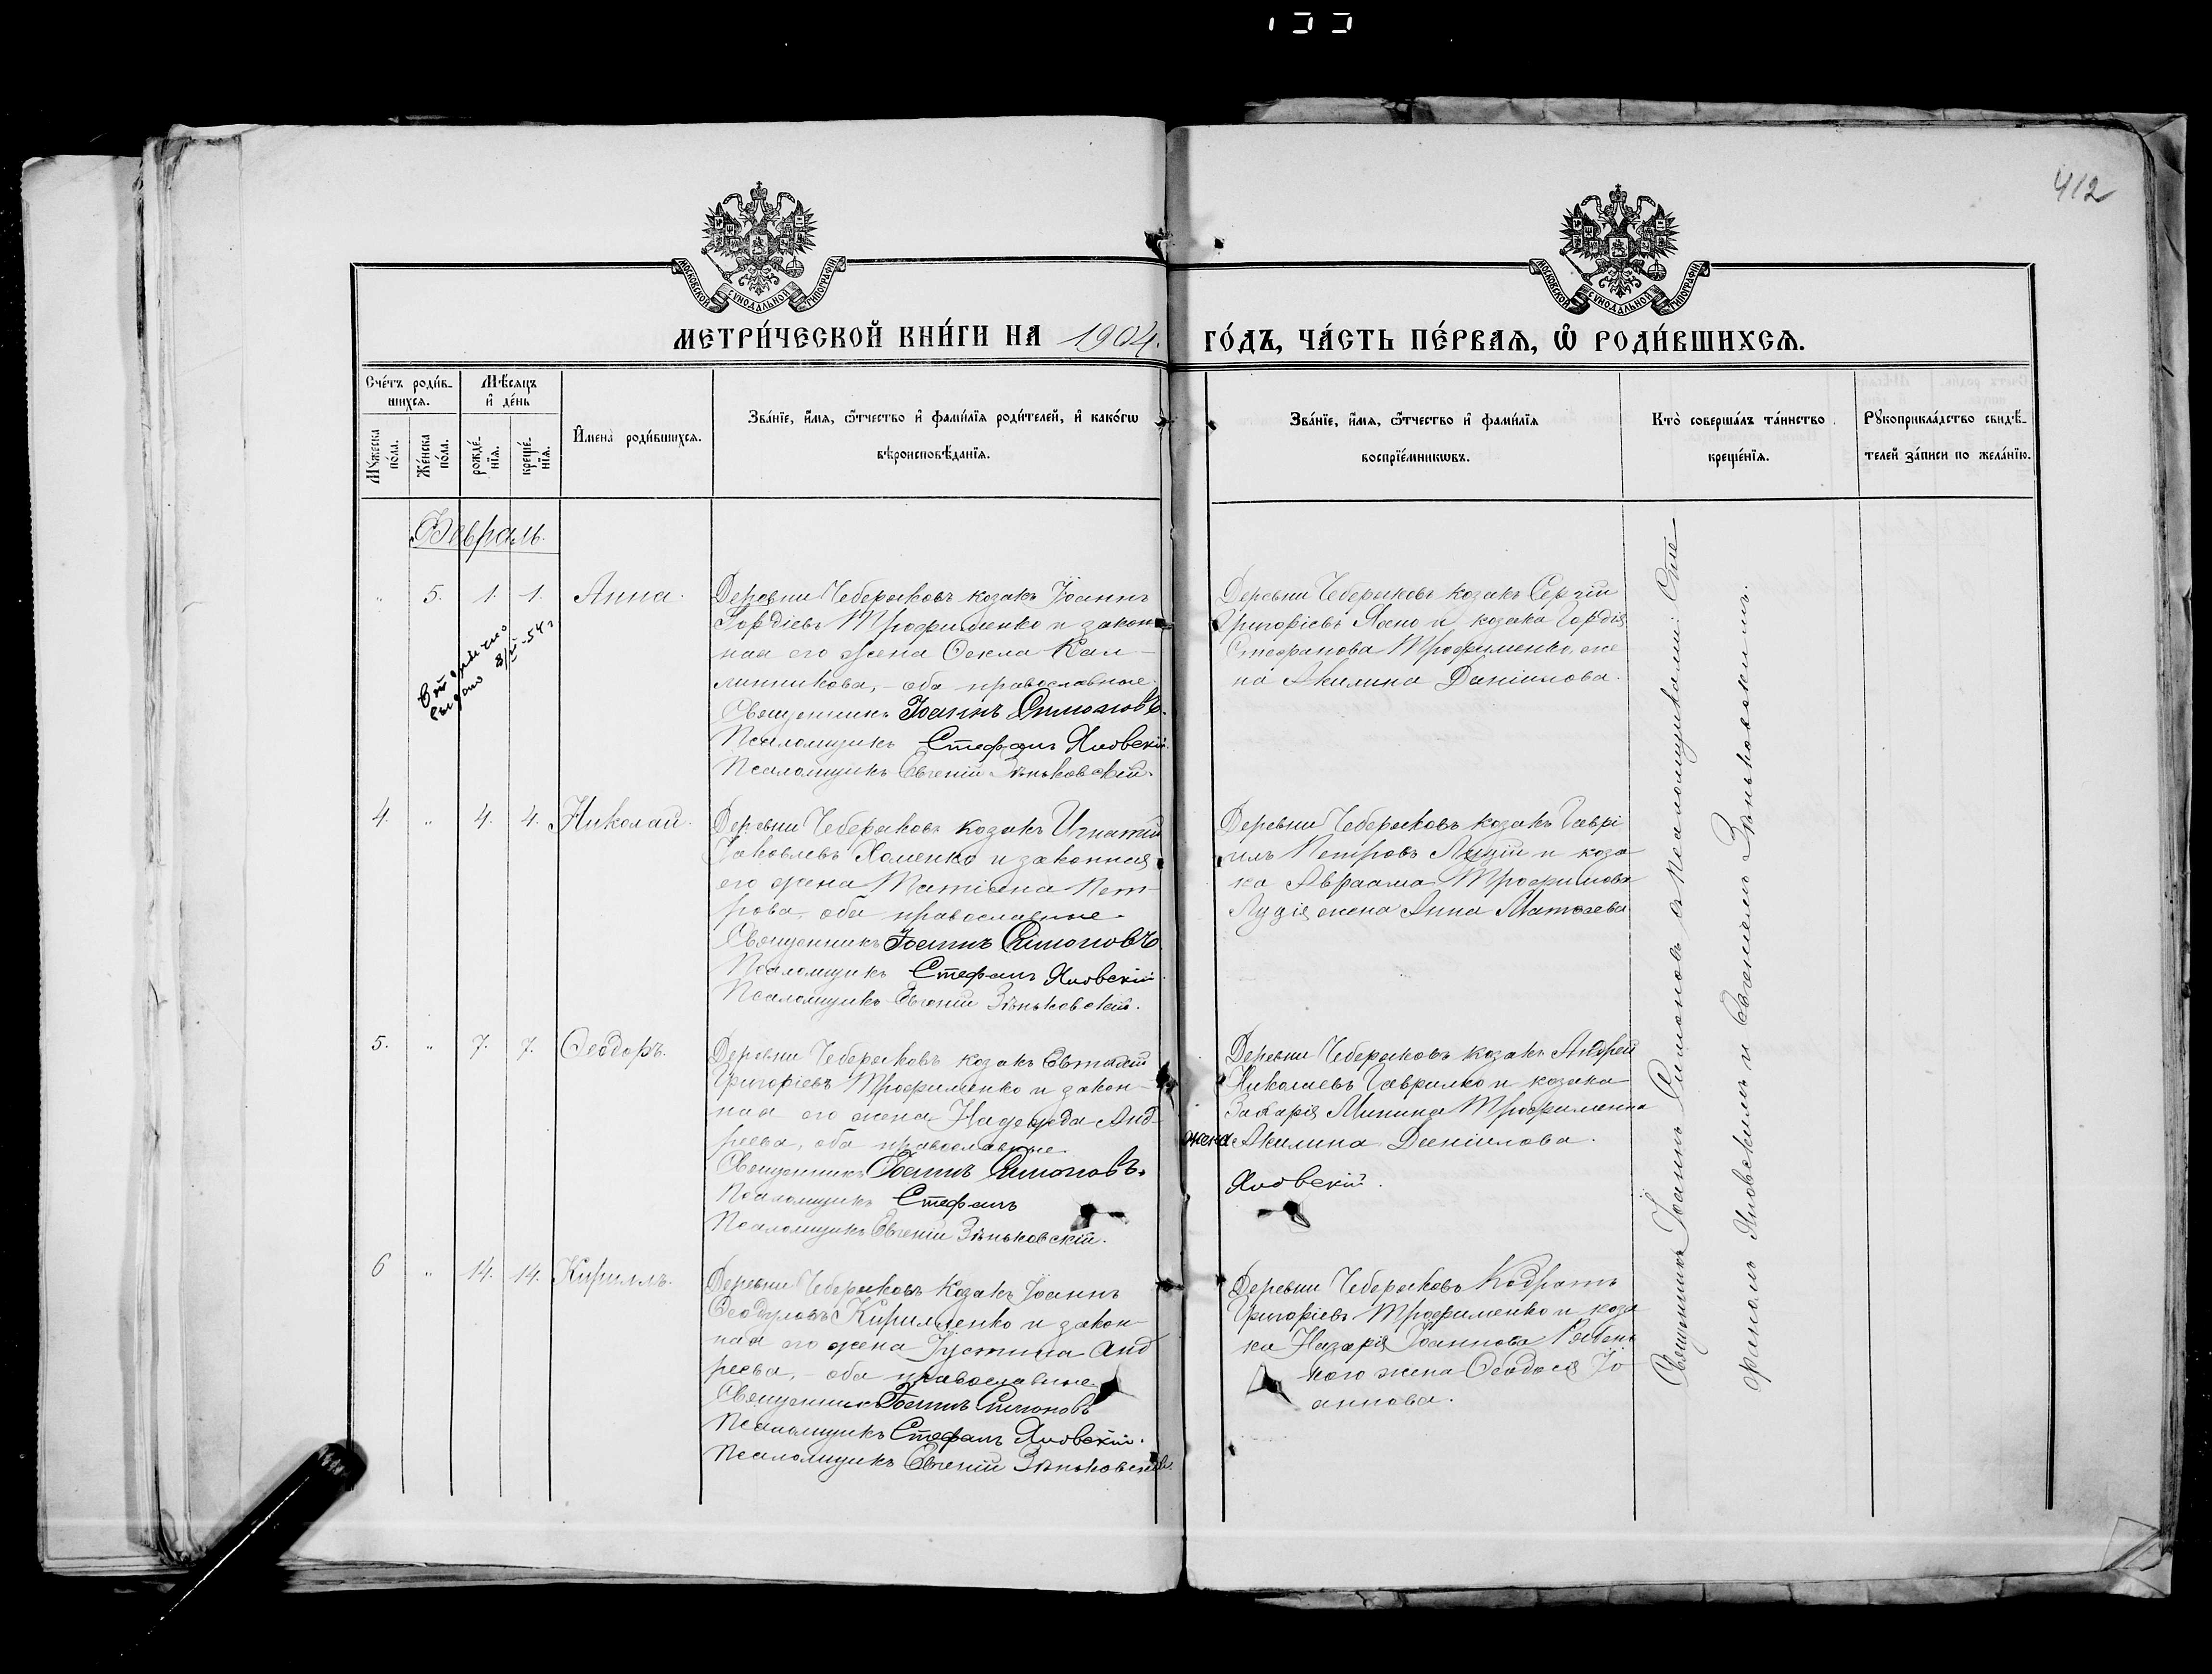 412
МОСКОВСКОЙ СѴНОДАЛЬНОЙ ТИПОГРАФІИ
МОСКОВСКОЙ СѴНОДАЛЬНОЙ ТИПОГРАФІИ
МЕТРИ́ЧЕСКОЙ КНИ́ГИ НА 1904. ГО́ДЪ, ЧА́СТЬ ПЕ́РВАЯ, Ѡ҆ РОДИ́ВШИХСЯ.
Сче́тъ роди́в-
шихся.
Мѣсяцъ
и҆ де́нь
Мꙋжеска
по́ла.
Же́нска
по́ла.
рожде́-
нїя.
креще́-
нїя.
И҆мена̀ роди́вшихся.
Зва́нїе, и҆́мя, ѻ҆́тчество и҆ фами́лїя роди́телей, и҆ како́гѡ
вѣроисповѣ́данїя.
Зва́нїе, и҆́мя, ѻ҆́тчество и҆ фами́лїя
воспрїе́мникѡвъ.
Кто̀ соверша́лъ та́инство
креще́нїя.
Рꙋкоприкла́дство свидѣ́-
телей за́писи по жела́нїю.
Февраль.
" 5. 1. 1. Анна.
Деревни Чеберяковъ козакъ Іоаннъ
Гордіевъ Трофименко и закон-
ная его жена Ѳекла Кал-
линникова, - оба православные.
Священникъ Іоаннъ Симоновъ.
Псаломщикъ Стефанъ Яновскій.
Псаломщикъ Евгеній Зѣньковскій.
Деревни Чеберяковъ козакъ Сергій
Григоріевъ Ясно и козака Гордія
Стефанова Трофименко, же
на Акилина Даніилова.
4. " 4. 4. Николай.
Деревни Чеберяковъ козакъ Игнатій
Іаковлевъ Хоменко и законная
его жена Татіана Пет-
рова, оба православные.
Священникъ Іоаннъ Симоновъ
Псаломщикъ Стефанъ Яновскій.
Псаломщикъ Евгеній Зѣньковскій.
Деревни Чеберяковъ козакъ Гаврі
илъ Петровъ и коза-
ка Авраама Трофимова
жена Анна Матѳеева
5. " 7. 7. Ѳеодоръ.
Деревни Чеберяковъ козакъ
Григоріевъ Трофименко и закон-
ная его жена Надежда Анд-
реева, оба православные
Священникъ Іоаннъ Симоновъ.
Псаломщикъ Стефанъ Яновскій.
Псаломщикъ Евгеній Зѣньковскій.
Деревни Чеберяковъ козакъ Андрей
Николаевъ Гаврилко и козака
Захарія Минина Трофименка
жена Акилина Даніилова.
6 " 14. 14. Кириллъ.
Деревни Чеберяковъ козакъ Іоаннъ
Ѳеодуловъ Кириленко и закон-
ная его жена Іустина Анд
реева, - оба православные
Священникъ Іоаннъ Симоновъ
Псаломщикъ Стефанъ Яновскій.
Псаломщикъ Евгеній Зѣньковскій.
Деревни Чеберяковъ Кодратъ
Григоріевъ Трофименко и коза
ка Назарія Іоаннова
жена Ѳеодосія Іо
аннова.
Священникъ Іоаннъ Симоновъ съ псаломщиками: Сте
фаномъ Яновскимъ и Евгеніемъ Зѣньковскимъ.